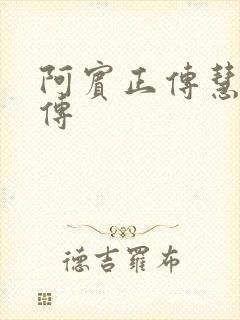 阿賓正傳慧
傳
德吉羅布